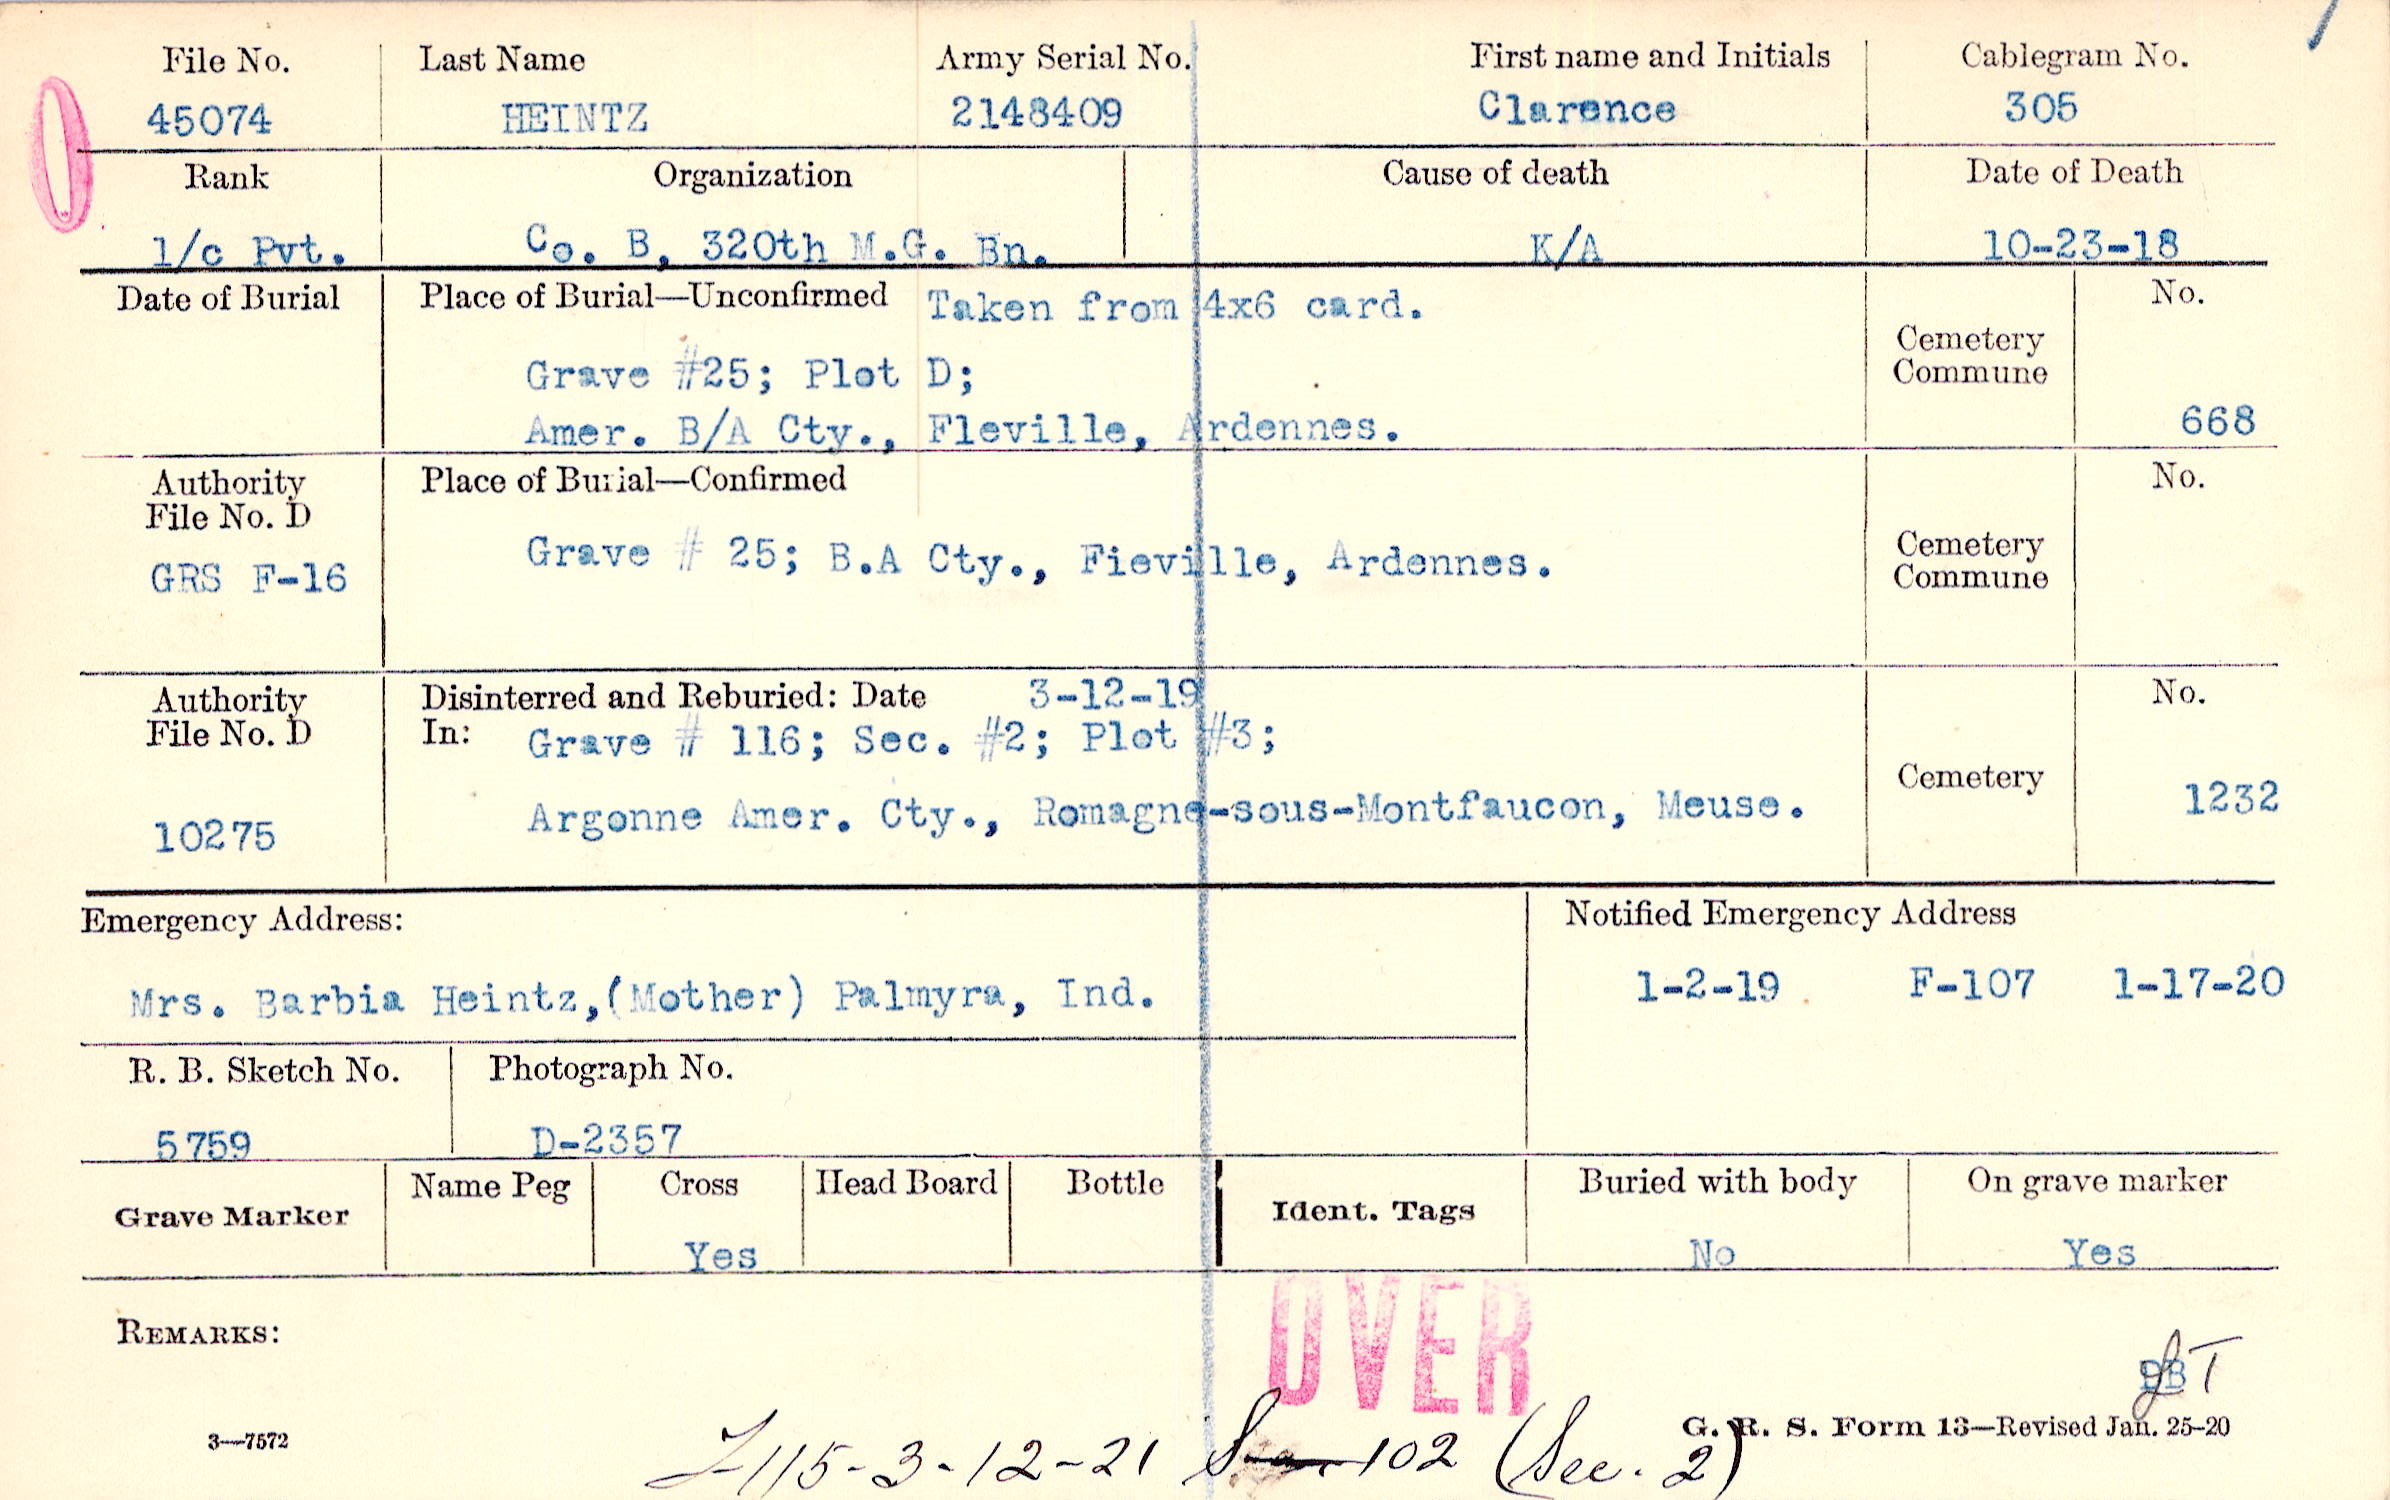 File No. Last Name Army Serial No. First name and Initials Cablegram No.
45074 HEINTZ 2148409 Clarence 305
Rank Organization Cause of death Date of Death
1/c Pvt. Co. B, 320th M.G. Bn. K/A 10-23-18
Date of Burial Place of Burial—Unconfirmed Taken from 4x6 card. No.
Grave #25; Plot D; Cemetery
Commune
Amer. B/A Cty., Fleville, Ardennes. 668
Authority Place of Burial—Confirmed No.
File No. D
GRS F-16 Grave # 25; B.A Cty., Fieville, Ardennes. Cemetery
Commune
Authority Disinterred and Reburied: Date 3-12-19 No.
File No. D In: Grave # 116; Sec. #2; Plot #3;
Cemetery
10275 Argonne Amer. Cty., Romagne-sous-Montfaucon, Meuse. 1232
Emergency Address: Notified Emergency Address
Mrs. Barbia Heintz,(Mother) Palmyra, Ind. 1-2-19 F-107 1-17-20
R. B. Sketch No. Photograph No.
5759 D-2357
Grave Marker Name Peg Cross Head Board Bottle Ident. Tags Buried with body On grave marker
Yes No Yes
OVER
REMARKS:
G. R. S. Form 13—Revised Jan. 25-20
3—7572
115-3-12-21 102 (Sec. 2)